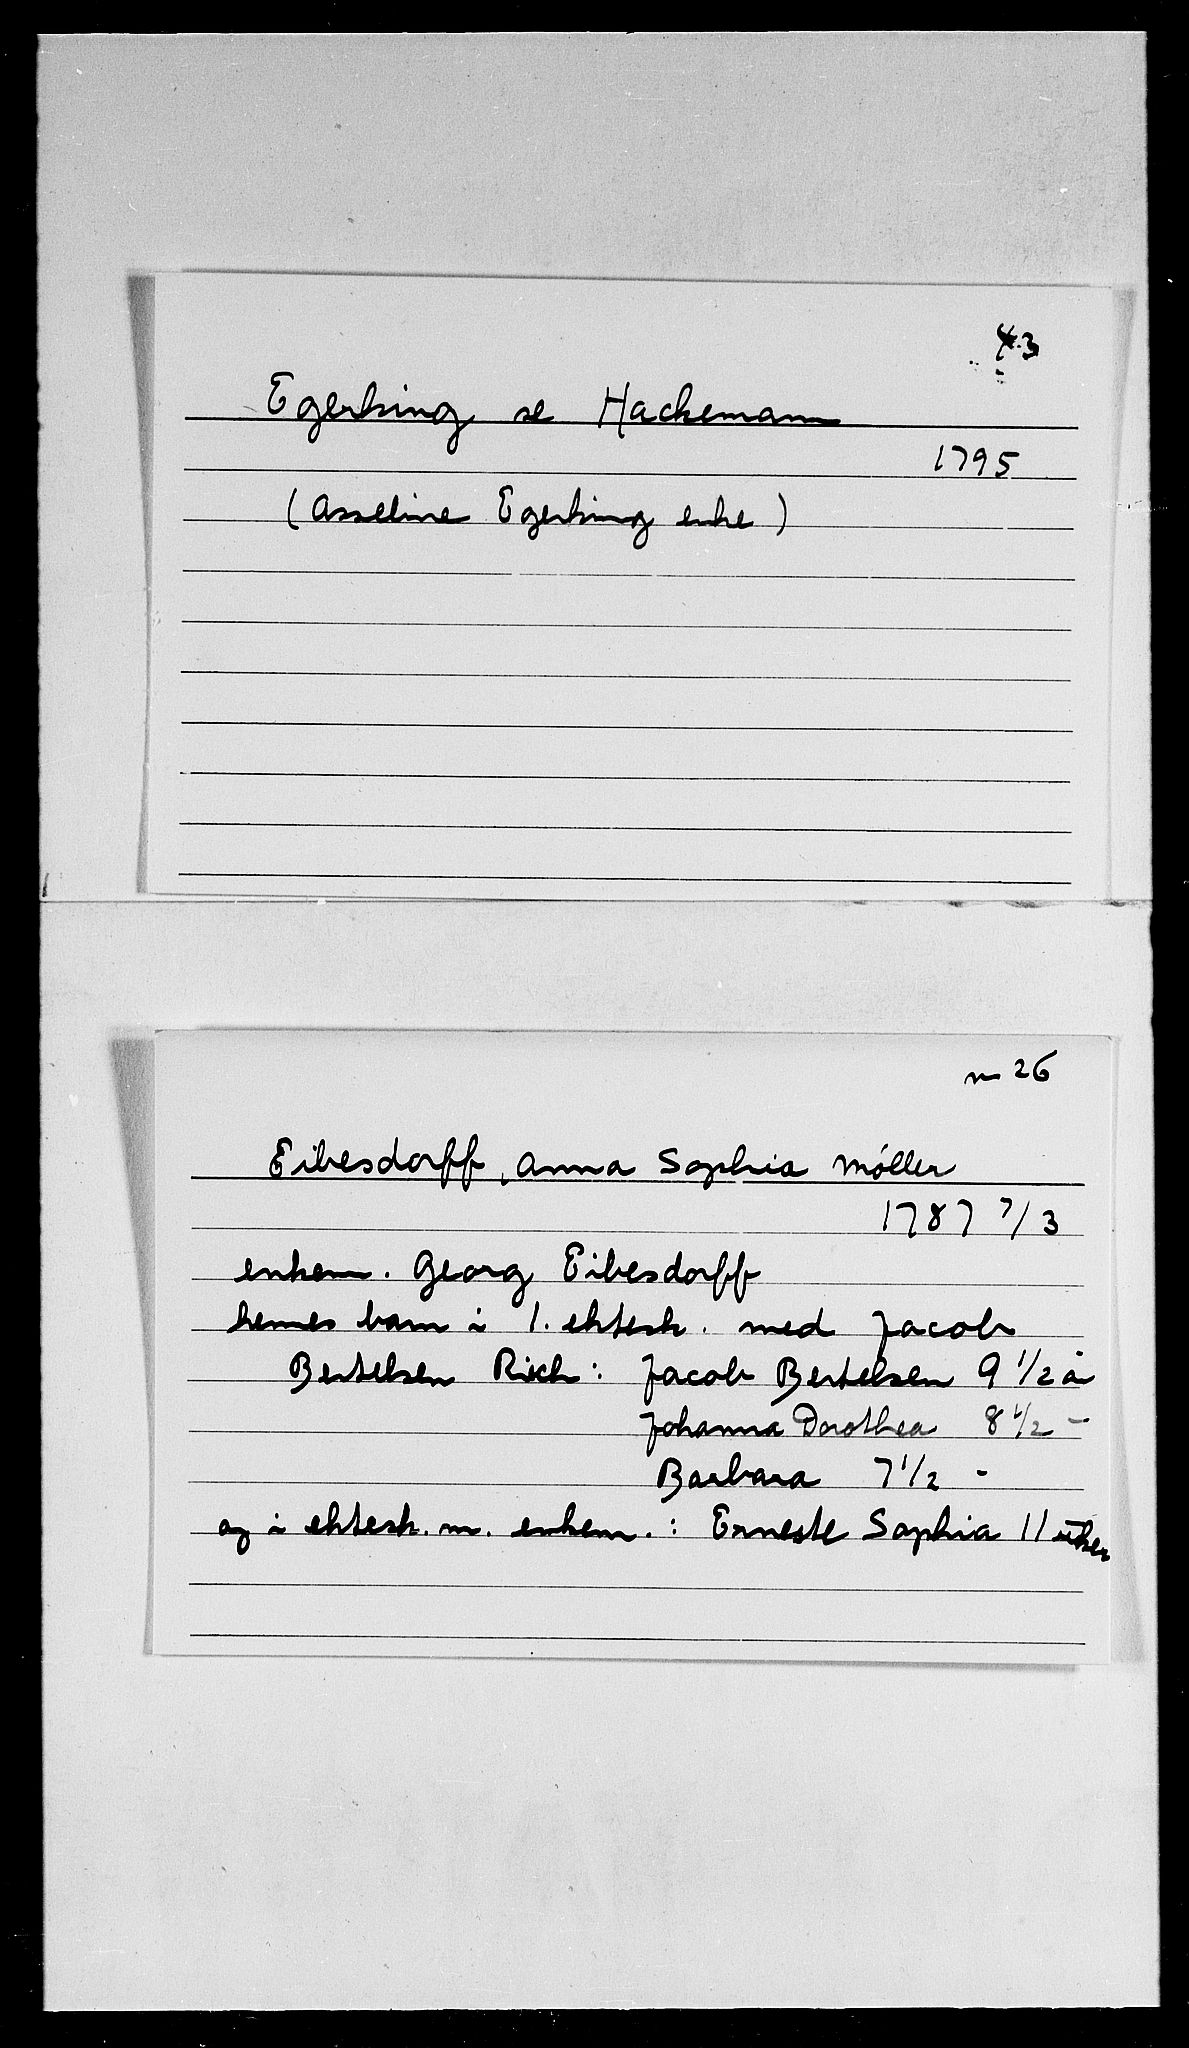 43
Egerking se Hackemann
1795
(Asseline Egerking enke)
n 26
Eibesdorff, Anna Sophia Møller
1787 7/3
enkem. Georg Eibesdorff
hennes barn i 1. ektesk. med Jacob
Bertelsen Rich: Jacob Bertelsen 9 1/2 år
Johanna Dorothea 8 1/2 -
Barbara 7 1/2 -
og i ektesk. m. enkem.: Erneste Sophia 11 uker